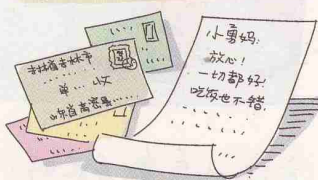 吉林省吉林市
单…收
小勇妈:
放心!
一切都好!
吃饭也不错.